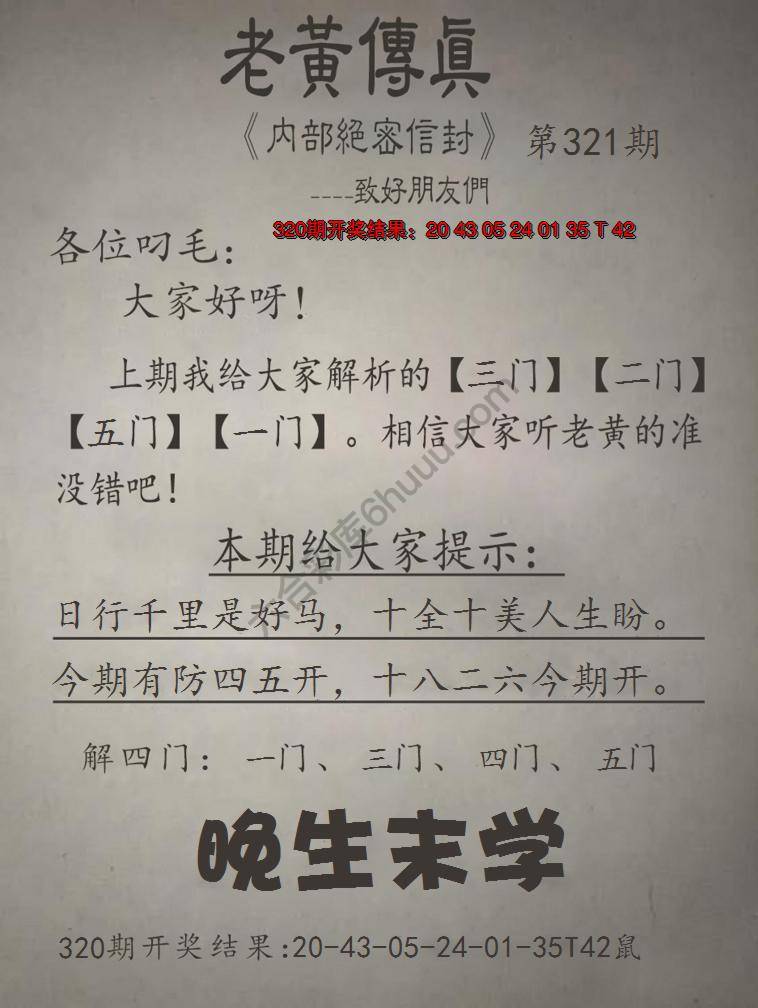 老黃傳眞
《内部絕密信封》 第321期
----致好朋友們
320期开奖结果：20 43 05 24 01 35 T 42
各位叼毛：
大家好呀！
上期我给大家解析的【三门】【二门】
【五门】【一门】。相信大家听老黄的准
没错吧！
六合彩库6huuu.com
本期给大家提示：
日行千里是好马，十全十美人生盼。
今期有防四五开，十八二六今期开。
解四门： 一门、三门、四门、五门
晚生末学
320期开奖结果:20-43-05-24-01-35T42鼠